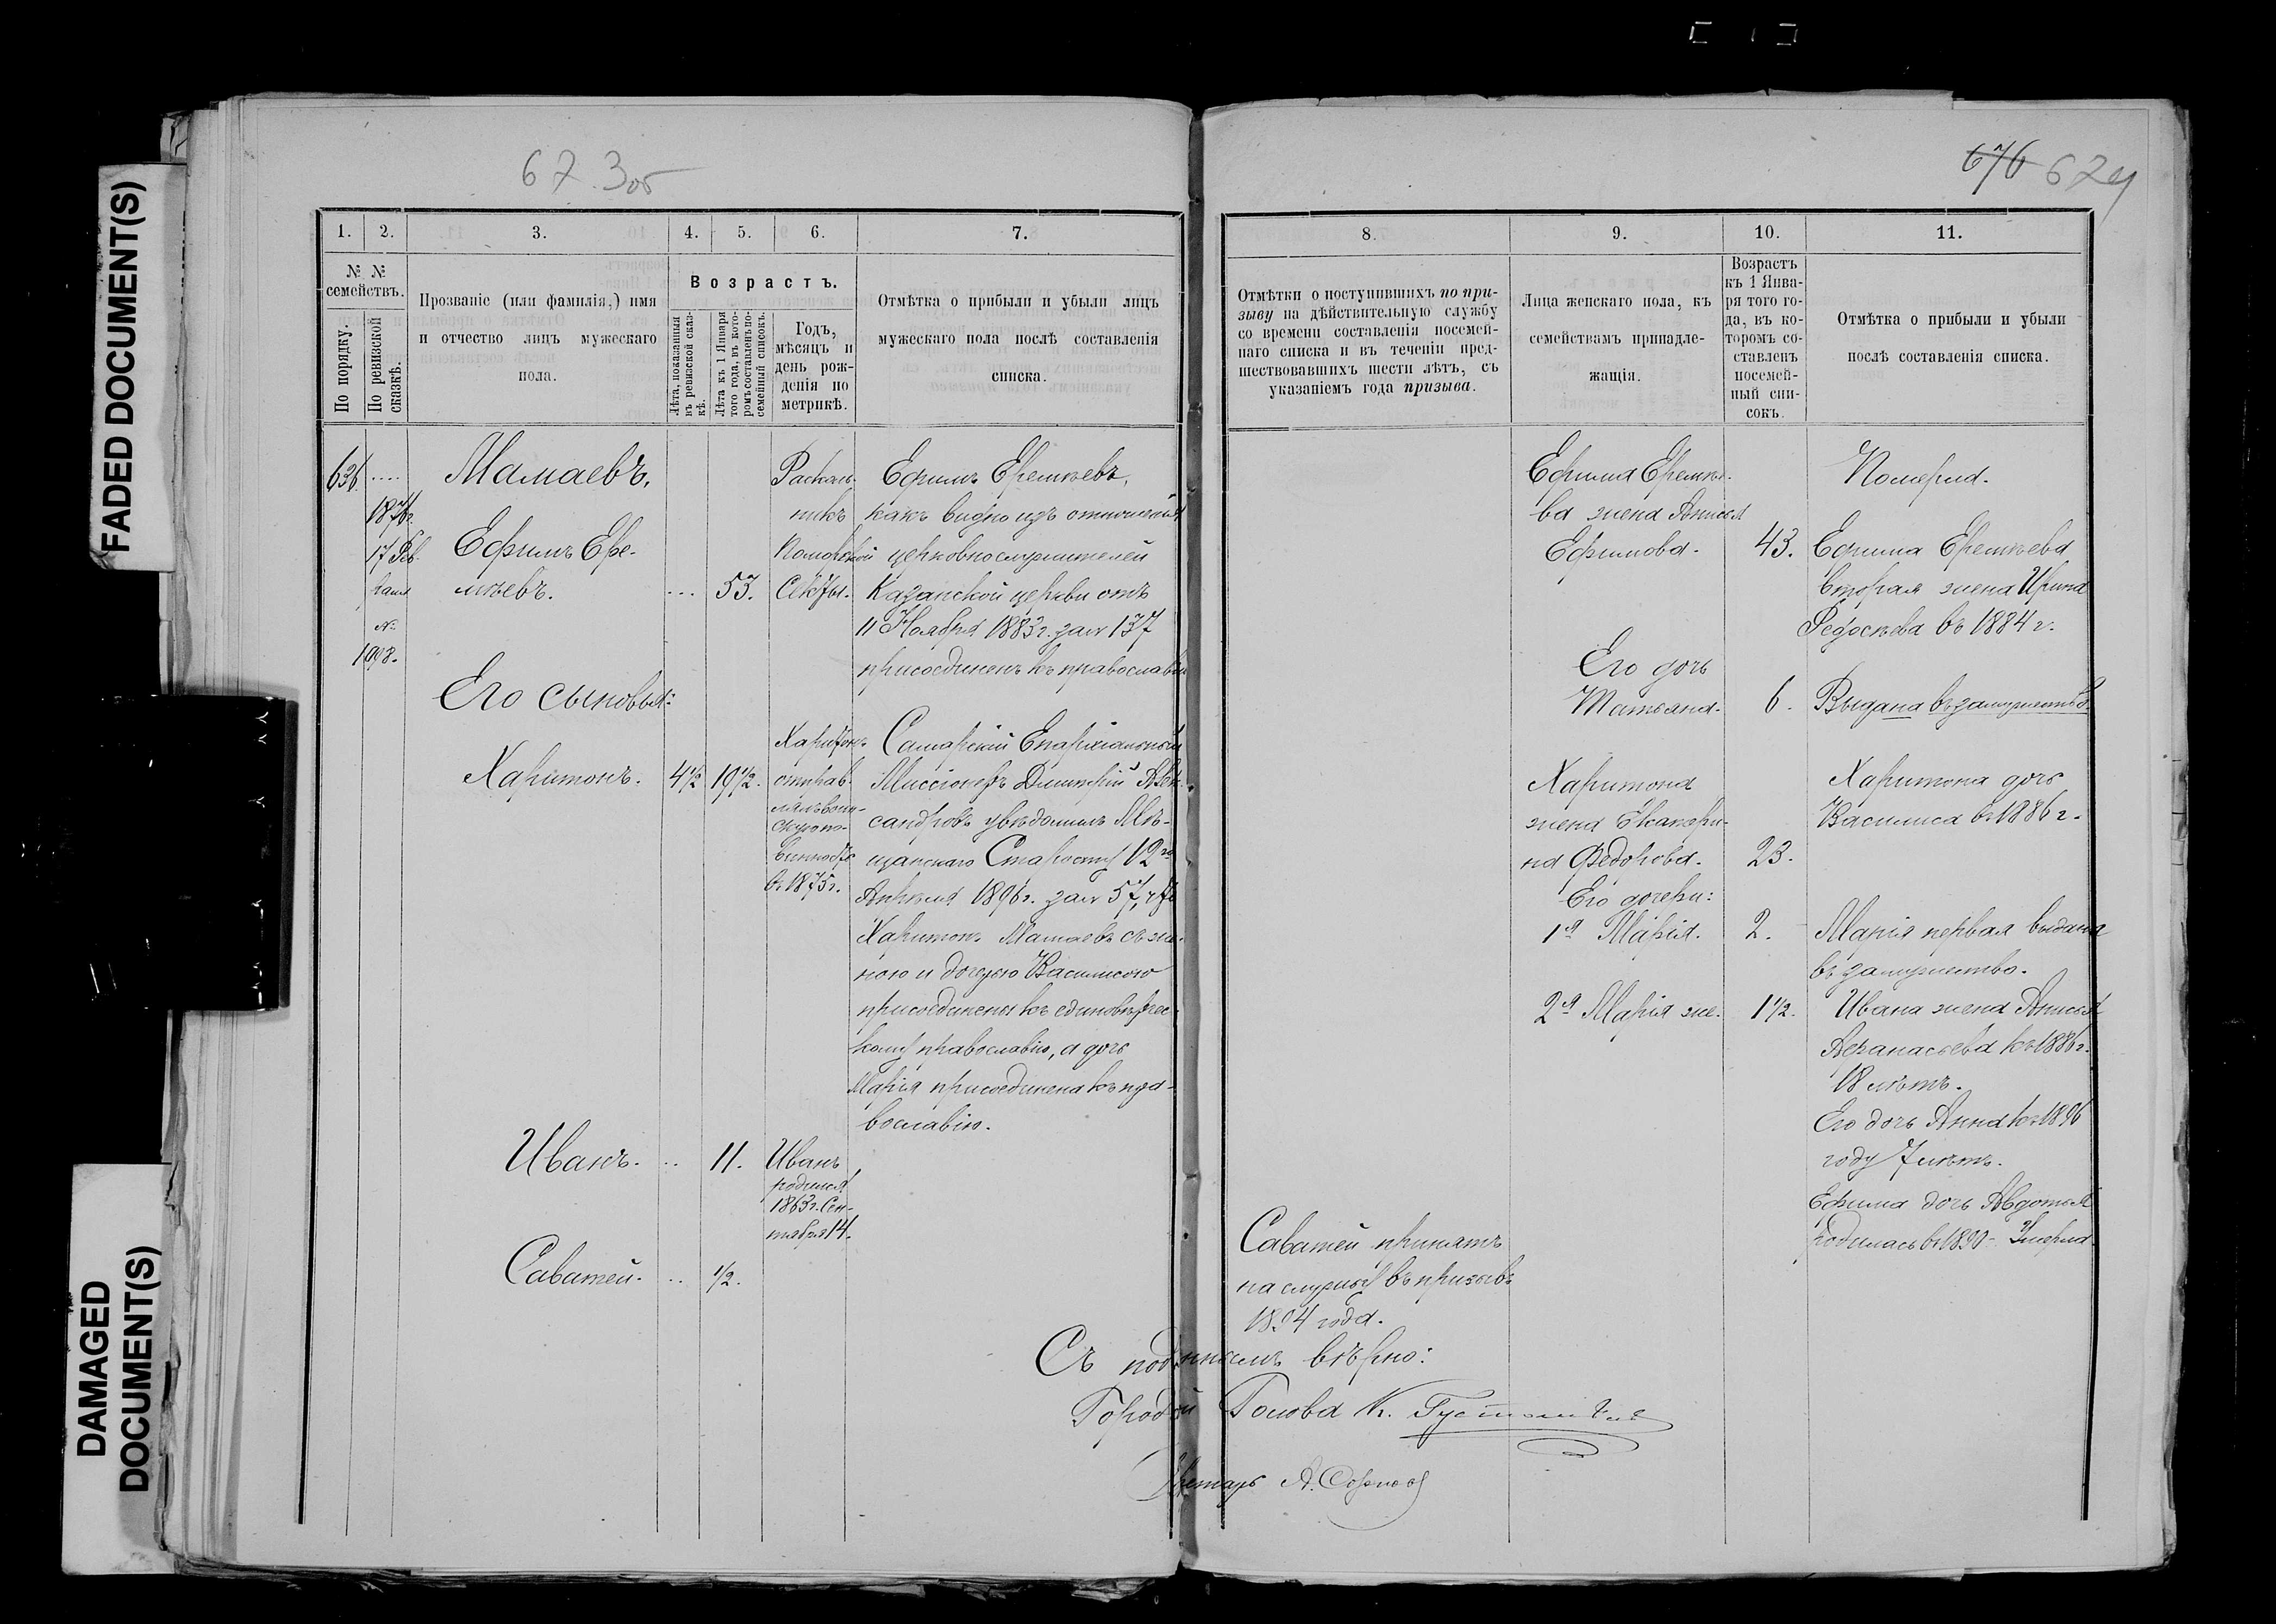 FADED DOCUMENT(S)
DAMAGED
DOCUMENT(S)
67 305
676 624
1.
2.
3.
4.
5.
6.
7.
№ №
семействъ.
По порядку.
По ревизской
сказкѣ.
Прозваніе (или фамилія,) имя
и отчество лицъ мужескаго
пола.
Возрастъ.
Лѣта, показанныя
въ ревизской сказ-
кѣ.
Лѣта къ 1 Января
того года, въ кото-
ромъ составленъ по-
семейный списокъ.
Годъ,
мѣсяцъ и
день рож-
денія по
метрикѣ.
Отмѣтка о прибыли и убыли лицъ
мужескаго пола послѣ составленія
списка.
636
....
1876г.
17 Фев-
раля
№
1098.
Мамаевъ.
Ефимъ Ере-
мѣевъ.
... 53.
Расколь-
никъ
Поморской
Секты.
Ефимъ Еремѣевъ,
какъ видно изъ отношенія
церковнослужителей
Казанской церкви отъ
11 Ноября 1883 г. за № 137
присоединенъ къ православію
Его сыновья:
Харитонъ. 4½ 19½.
Харитонъ
отправ-
лялъ воин-
скую по-
винность
въ 1875 г.
Самарскій Епархіальный
Миссіонеръ Димитрій Алек-
сандровъ увѣдомилъ Мѣ-
щанскаго Старосту 12го
Апрѣля 1896 г. за № 57, что
Харитонъ Мамаевъ съ же-
ною и дочерью Василисою
присоединены къ единовѣрчес-
кому православію, а дочь
Марія присоединена къ пра-
вославію.
Иванъ. .. 11.
Иванъ
родился
1863 г. Сен-
тября 14.
Саватей. .. ½.
8.
9.
10.
11.
Отмѣтки о поступившихъ по при-
зыву на дѣйствительную службу
со времени составленія посемей-
наго списка и въ теченіи пред-
шествовавшихъ шести лѣтъ, съ
указаніемъ года призыва.
Лица женскаго пола, къ
семействамъ принадле-
жащія.
Возрастъ
къ 1 Янва-
ря того го-
да, въ ко-
торомъ со-
ставленъ
посемей-
ный спи-
сокъ.
Отмѣтка о прибыли и убыли
послѣ составленія списка.
Ефима Еремѣе-
ва жена Анисья
Ефимова. 43.
Померла.
Ефима Еремѣева
вторая жена Ирина
Федосѣева въ 1884 г.
Его дочь
Татьяна. 6.
Выдана въ замужество.
Харитона
жена Екатери-
на Федорова. 23.
Харитона дочь
Василиса въ 1886 г.
Его дочери:
1я Марія. 2.
Марія первая выдана
въ замужество.
2я Марія же. 1½.
Ивана жена Анисья
Афанасьева къ 1886 г.
18 лѣтъ.
Его дочь Анна къ 1896
году 7 лѣтъ.
Ефима дочь Авдотья
родилась въ 1890 - Умерла.
Саватей принятъ
на службу въ призывъ
1894 года.
Съ подлиннымъ вѣрно:
Городской Голова К.
Секретарь А.